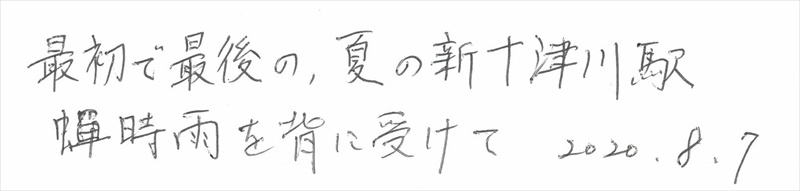 最初で最後の,夏の新十津川駅
蝉時雨を背に受けて 2020.8.7